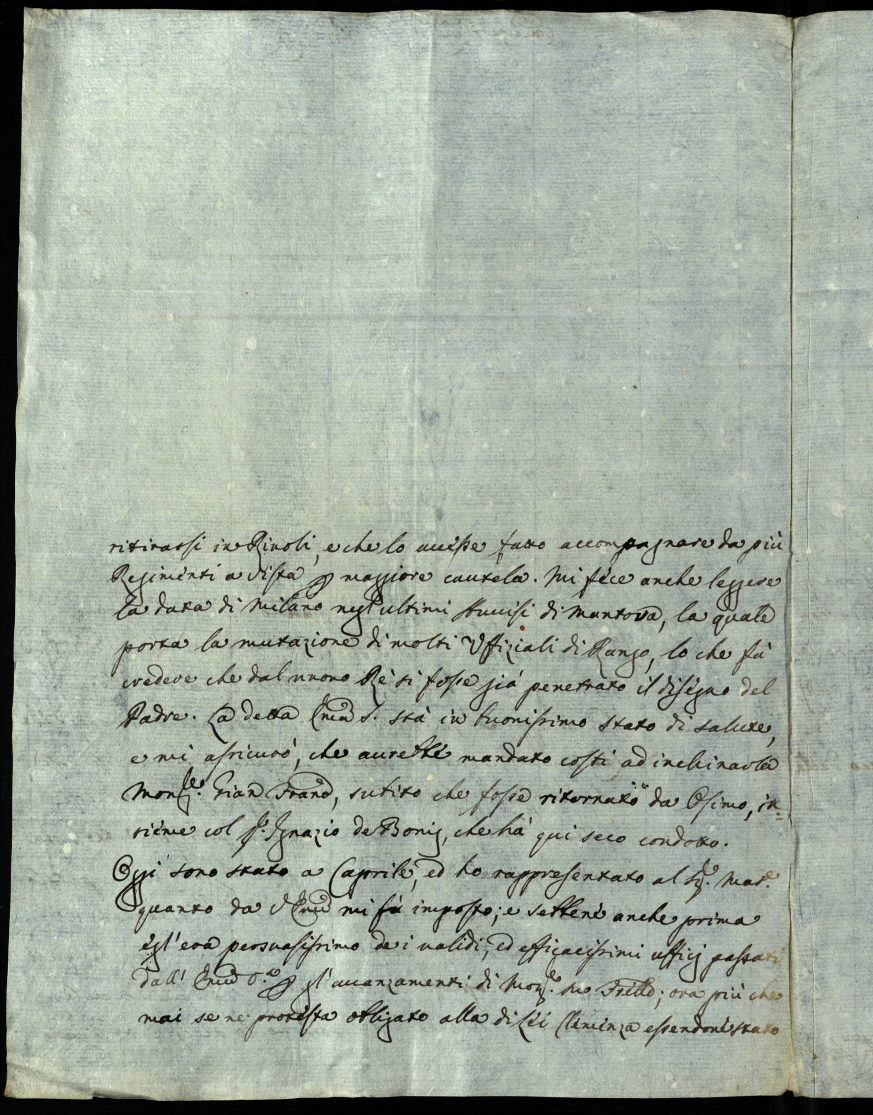 ritirassi in Rivoli, e che lo avesse fatto accompagnare da più
Regimenti a vista p maggiore cautela. Mi fece anche leggere
la data di Milano negl'ultimi Avvisi di Mantova, la quale
porta la mutazione di molti Uffiziali di Rango, lo che fà
credere che dal nuovo Rè si fosse già penetrato il disegno del
Padre. La detta Emza S. stà in buonissimo stato di salute,
e mi assicurò, che avrebbe mandato costì ad inchinarla
Monsre. Gian Franc, subito che fosse ritornato da Osimo, in=
sieme col P. Ignazio de Bonis, che hà qui seco condotto.
Oggi sono stato a Caprile, ed ho rappresentato al Sigr. Mar.
quanto da V Emza mi fù imposto; e sebbene anche prima
egl'era persuasissimo de i validi, ed efficacissimi ufficj passati
dall' Emza V.a p gl'avanzamenti di Monsre. suo Frello; ora più che
mai se ne protesta obligato alla di Lei Clemenza essendone stato